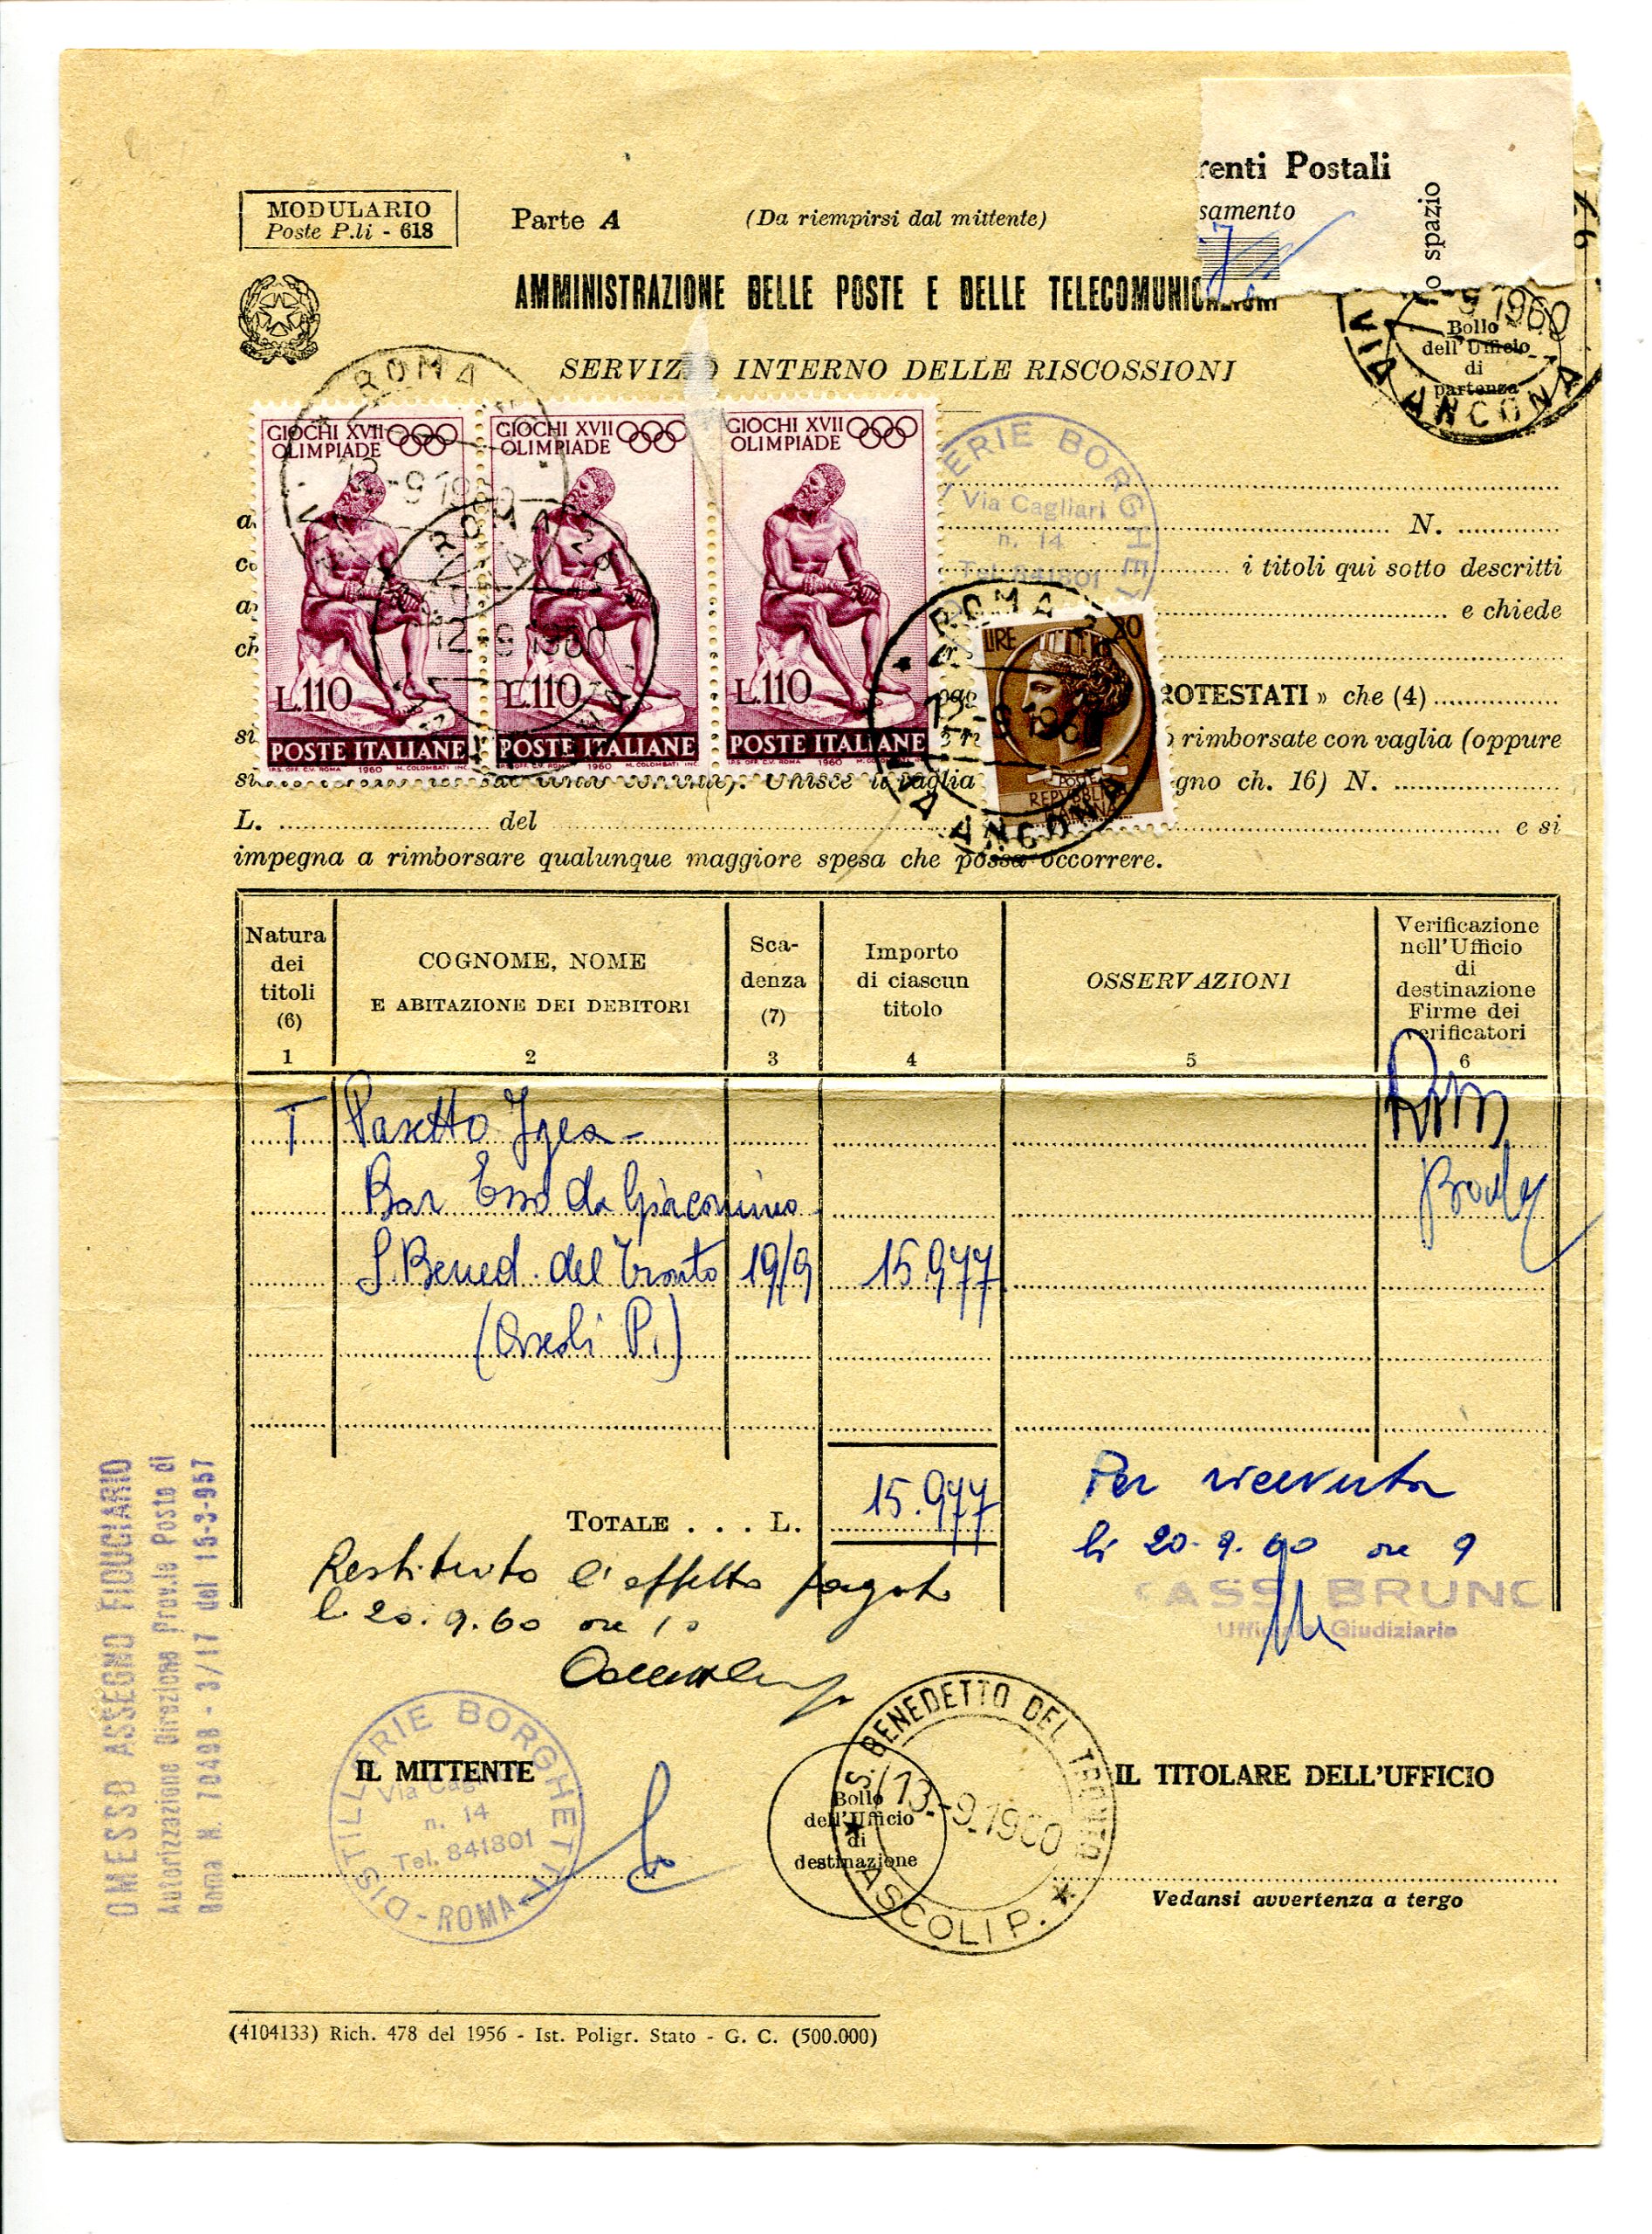 renti Postali
samento
o spazio
MODULARIO
Poste P.li - 618
Parte A
(Da riempirsi dal mittente)
AMMINISTRAZIONE DELLE POSTE E DELLE TELECOMUNICAZIONI
SERVIZIO INTERNO DELLE RISCOSSIONI
9 1960
Bollo
dell'Ufficio
di
partenza
VIA ANCONA
ROMA
12-9 1960
GIOCHI XVII
OLIMPIADE
L.110
POSTE ITALIANE
I.P.S. OFF. C.V. ROMA 1960 M. COLOMBATI INC.
GIOCHI XVII
OLIMPIADE
L.110
POSTE ITALIANE
1960 M. COLOMBATI INC.
GIOCHI XVII
OLIMPIADE
L.110
POSTE ITALIANE
I.P.S. OFF. C.V. ROMA 1960
ROMA 26
12-9 1960
ERIE BORGHE
Via Cagliari
n. 14
Tel. 841801
N.
i titoli qui sotto descritti
e chiede
ch
ROMA
12-9 1960
VIA ANCONA
LIRE 20
POSTE
REPVBBLICA
ITALIANA
ROTESTATI » che (4)
si
rimborsate con vaglia (oppure
Unisce il vaglia
gno ch. 16) N.
L. del e si
impegna a rimborsare qualunque maggiore spesa che possa occorrere.
Natura
dei
titoli
(6)
1
COGNOME, NOME
E ABITAZIONE DEI DEBITORI
2
Sca-
denza
(7)
3
Importo
di ciascun
titolo
4
OSSERVAZIONI
5
Verificazione
nell'Ufficio
di
destinazione
Firme dei
verificatori
6
T Pasetto Igea -
Bar Esso da Giacomino
S. Bened. del Tronto 19/9 15.977
(Ascoli P.)
TOTALE . . . L. 15.977
Per ricevuta
li 20.9.60 ore 9
CASSI BRUNO
Ufficiale Giudiziario
Restituito l'effetto pagato
li 20.9.60 ore 10
OMESSO ASSEGNO FIDUCIARIO
Autorizzazione Direzione Prov.le Poste di
Roma N. 70498 - 3/17 del 15-3-957
IL MITTENTE
DISTILLERIE BORGHETTI
Via Cagliari
n. 14
Tel. 841801
- ROMA -
Bollo
dell'Ufficio
di
destinazione
S. BENEDETTO DEL TRONTO
13-9.1960
ASCOLI P.
IL TITOLARE DELL'UFFICIO
Vedansi avvertenza a tergo
(4104133) Rich. 478 del 1956 - Ist. Poligr. Stato - G. C. (500.000)